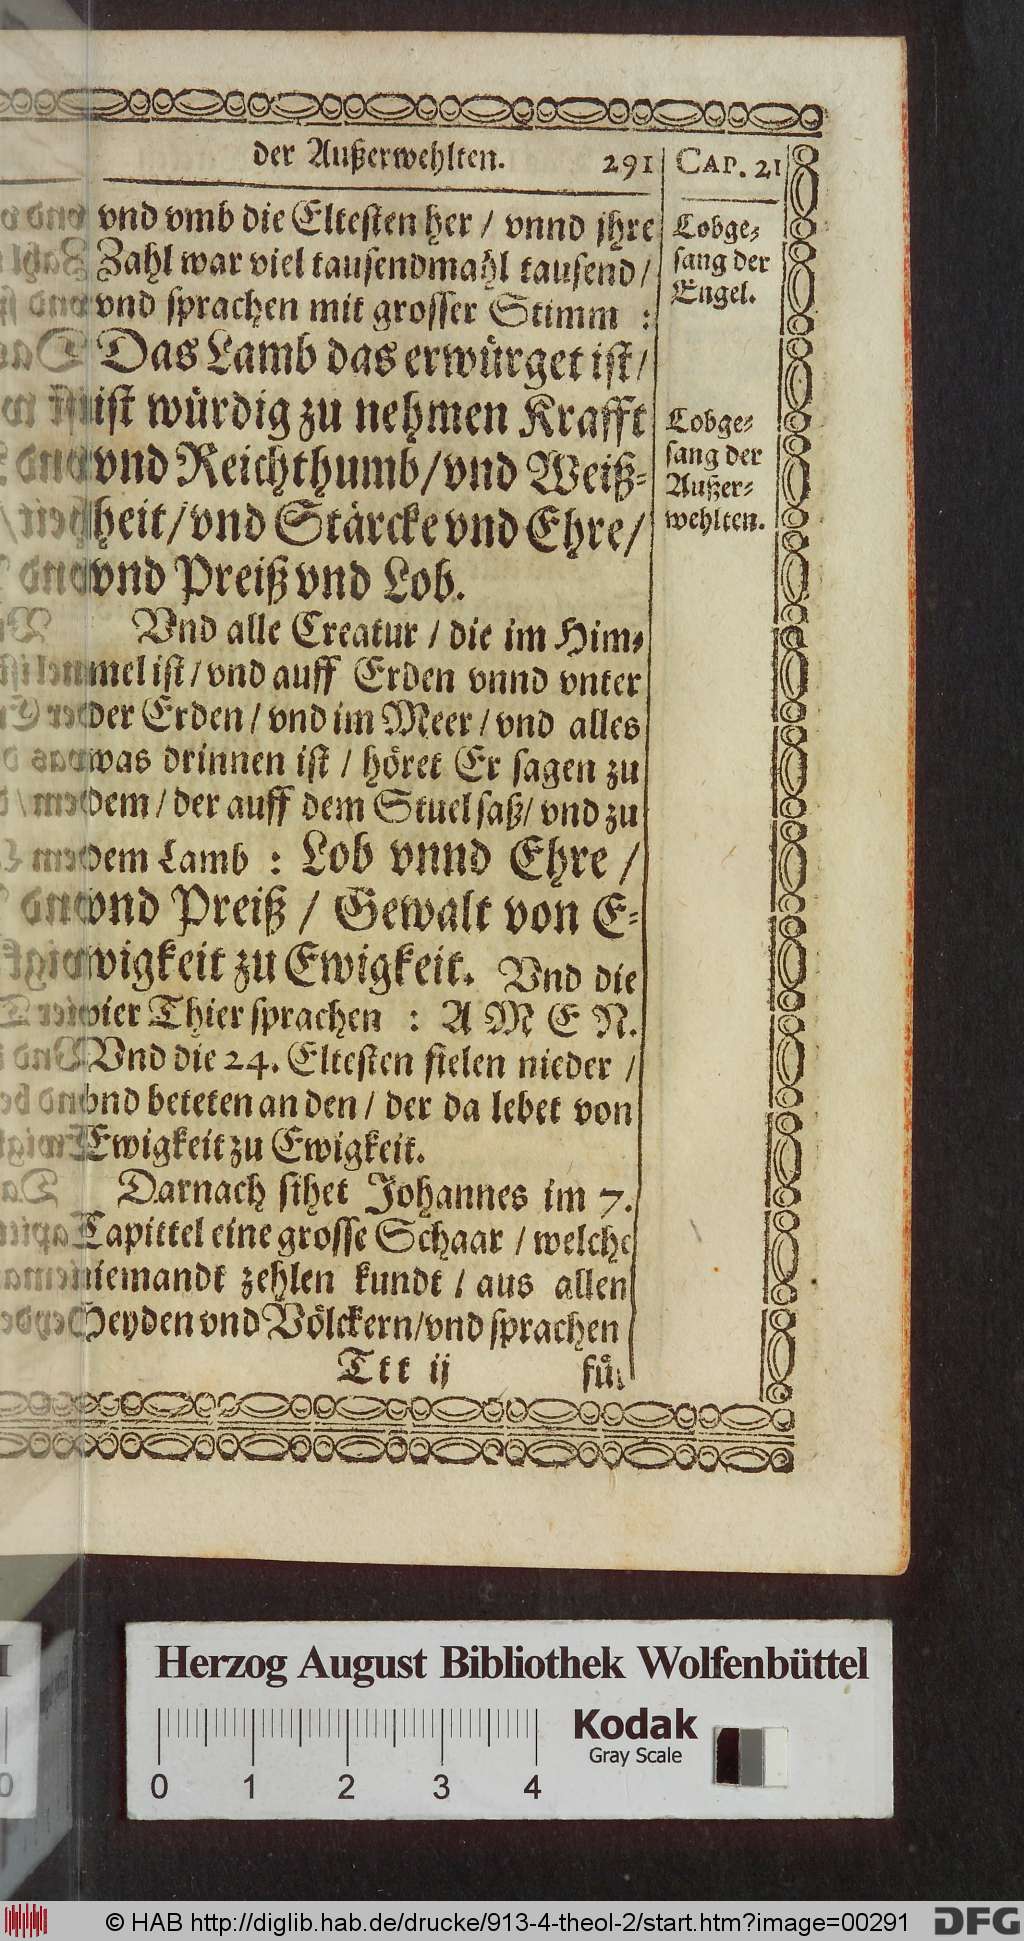 der Außerwehlten. 291 CAP. 21
vnd vmb die Eltesten her / vnnd jhre
Zahl war viel tausendmahl tausend /
vnd sprachen mit grosser Stimm :
Das Lamb das erwürget ist /
ist würdig zu nehmen Krafft
vnd Reichthumb / vnd Weiß-
heit / vnd Stärcke vnd Ehre /
vnd Preiß vnd Lob.
Vnd alle Creatur / die im Him-
mel ist / vnd auff Erden vnnd vnter
der Erden / vnd im Meer / vnd alles
was drinnen ist / höret Er sagen zu
dem / der auff dem Stuel saß / vnd zu
dem Lamb : Lob vnnd Ehre /
vnd Preiß / Gewalt von E-
wigkeit zu Ewigkeit. Vnd die
vier Thier sprachen : A M E N.
Vnd die 24. Eltesten fielen nieder /
vnd beteten an den / der da lebet von
Ewigkeit zu Ewigkeit.
Darnach sihet Johannes im 7.
Capittel eine grosse Schaar / welche
niemandt zehlen kundt / aus allen
Heyden vnd Völckern / vnd sprachen
Ttt ij für
Lobge-
sang der
Engel.
Lobge-
sang der
Außer-
wehlten.
Herzog August Bibliothek Wolfenbüttel
Kodak
Gray Scale
0 1 2 3 4
© HAB http://diglib.hab.de/drucke/913-4-theol-2/start.htm?image=00291
DFG